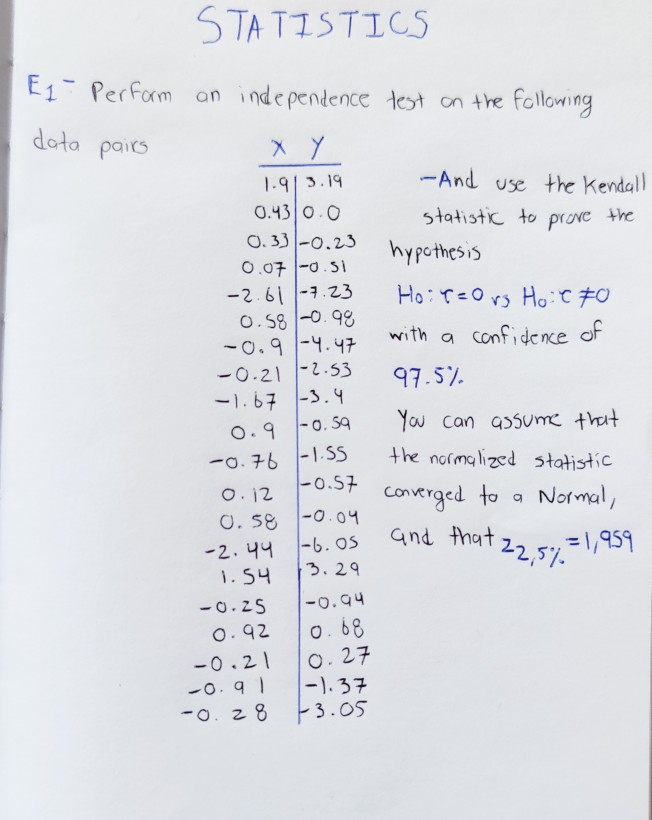 STATISTICS
E1- Perform an independence test on the following
data pairs
X Y
1.9 3.19
0.43 0.0
0.33 -0.23
0.07 -0.51
-2.61 -7.23
0.58 -0.98
-0.9 -4.47
-0.21 -2.53
-1.67 -3.4
0.9 -0.59
-0.76 -1.55
0.12 -0.57
0.58 -0.04
-2.44 -6.05
1.54 3.29
-0.25 -0.94
0.92 0.68
-0.21 0.27
-0.91 -1.37
-0.28 -3.05
-And use the Kendall
statistic to prove the
hypothesis
H0: τ=0 vs H0: τ≠0
with a confidence of
97.5%
You can assume that
the normalized statistic
converged to a Normal,
and that z2,5%=1,959